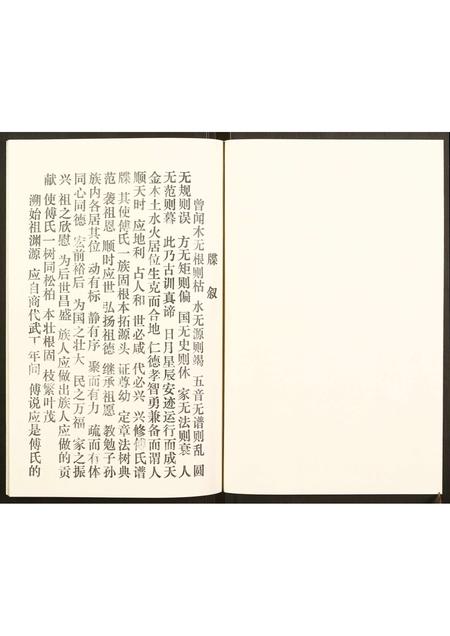 牒叙
曾闻木无根则枯 水无源则竭 五音无谱则乱 圆
无规则误 方无矩则偏 国无史则休 家无法则衰 人
无范则暮 此乃古训真谛 日月星辰安迹运行而成天
金木土水火居位生克而合地 仁德孝智勇兼备而谓人
顺天时 应地利 占人和 世必咸 代必兴 兴修傅氏谱
牒 其使傅氏一族固根本拓源头 证尊幼 定章法树典
范 袭祖恩 顺时应世 弘扬祖德 继承祖愿 教勉子孙
族内各居其位 动有标 静有序 聚而有力 疏而有体
同心同德 宏前裕后 为国之壮大 民之万福 家之振
兴 祖之欣慰 为后世昌盛 族人应做出族人应做的贡
献 使傅氏一树同松柏 本壮根固 枝繁叶茂
溯始祖渊源 应自商代武丁年间 傅说应是傅氏的